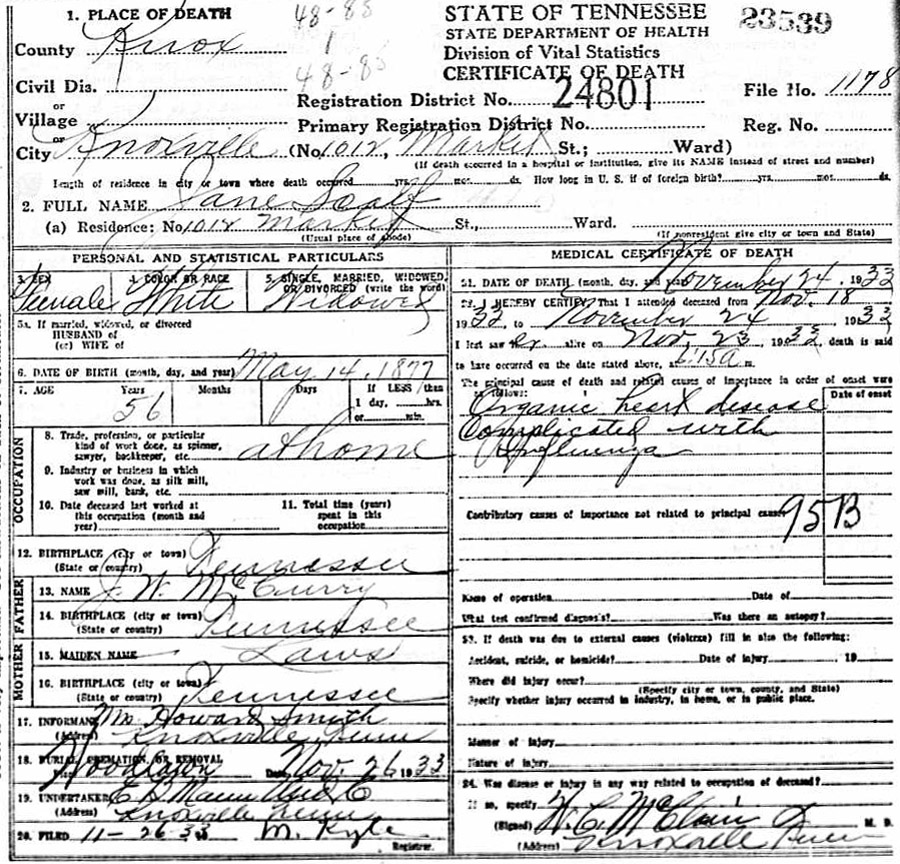 1. PLACE OF DEATH
48-88
STATE OF TENNESSEE
23539
STATE DEPARTMENT OF HEALTH
County Knox
1
Division of Vital Statistics
48-88
CERTIFICATE OF DEATH
Civil Dis.
Registration District No. 24801
File No. 1178
or
Village
Primary Registration District No.
Reg. No.
or
City Knoxville (No. 1012, Market St.; Ward)
(If death occurred in a hospital or institution, give its NAME instead of street and number)
Length of residence in city or town where death occurred yrs. mos. ds. How long in U. S. if of foreign birth? yrs. mos. ds.
2. FULL NAME Jane Scalf
(a) Residence: No. 1012 Market St., Ward.
(Usual place of abode) (If nonresident give city or town and State)
PERSONAL AND STATISTICAL PARTICULARS
3. SEX 4. COLOR OR RACE 5. SINGLE, MARRIED, WIDOWED, OR DIVORCED (write the word)
Female White Widowed
5a. If married, widowed, or divorced
HUSBAND of
(or) WIFE of
6. DATE OF BIRTH (month, day, and year) May 14, 1877
7. AGE Years Months Days If LESS than
1 day, hrs.
56
or min.
OCCUPATION
8. Trade, profession, or particular
kind of work done, as spinner,
sawyer, bookkeeper, etc. at home
9. Industry or business in which
work was done, as silk mill,
saw mill, bank, etc.
10. Date deceased last worked at
this occupation (month and
year)
11. Total time (years)
spent in this
occupation
12. BIRTHPLACE (city or town)
(State or country) Tennessee
FATHER
13. NAME J. W. McCurry
14. BIRTHPLACE (city or town)
(State or country) Tennessee
MOTHER
15. MAIDEN NAME Laws
16. BIRTHPLACE (city or town)
(State or country) Tennessee
17. INFORMANT Mrs Howard Smith
(Address) Knoxville, Tenn
18. BURIAL, CREMATION, OR REMOVAL
Woodlawn Date Nov. 26 1933
19. UNDERTAKER E B Mann Und Co
(Address) Knoxville Tenn
20. FILED 11-26 33 M. Kyle
Registrar.
MEDICAL CERTIFICATE OF DEATH
21. DATE OF DEATH (month, day, and year) November 24, 1933
22. I HEREBY CERTIFY, That I attended deceased from Nov. 18
1933, to November 24 1933
I last saw her alive on Nov, 23 1933 death is said
to have occurred on the date stated above, 6:15a m.
The principal cause of death and related causes of importance in order of onset were
as follows: Date of onset
Organic heart disease
Complicated with
Influenza
Contributory causes of importance not related to principal cause:
95B
Name of operation Date of
What test confirmed diagnosis? Was there an autopsy?
23. If death was due to external causes (violence) fill in also the following:
Accident, suicide, or homicide? Date of injury 19
Where did injury occur?
(Specify city or town, county, and State)
Specify whether injury occurred in industry, in home, or in public place.
Manner of injury
Nature of injury
24. Was disease or injury in any way related to occupation of deceased?
If so, specify
(Signed) W. C. McClain M. D.
(Address) Knoxville Tenn